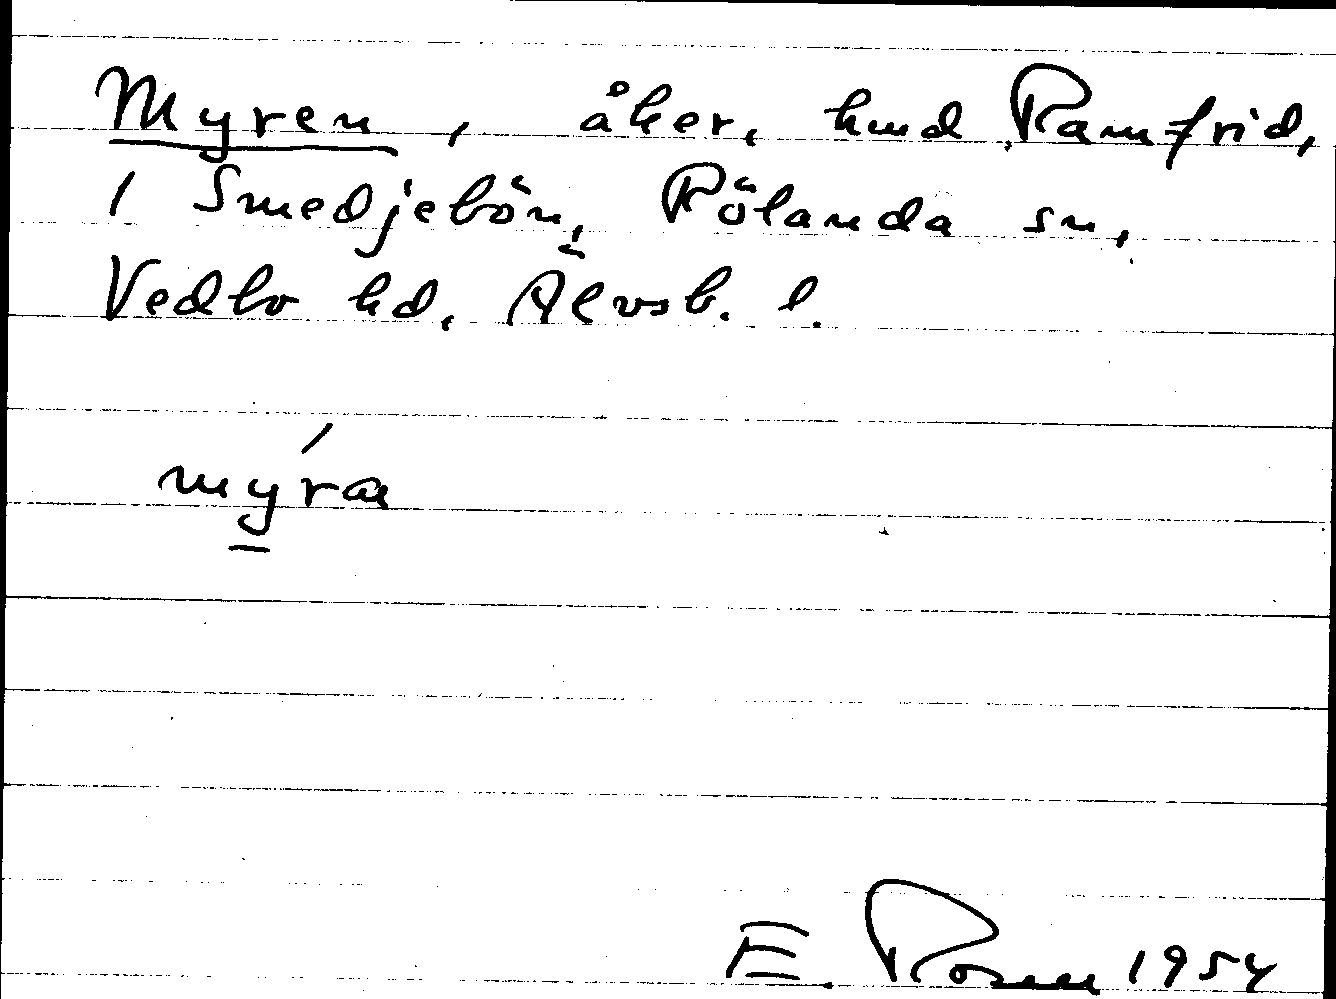 Myren, åker, hmd Ramfrid,
1 Smedjebön, Rölanda sn,
Vedbo hd, Älvsb. l.
mýra
E. Rosen 1954